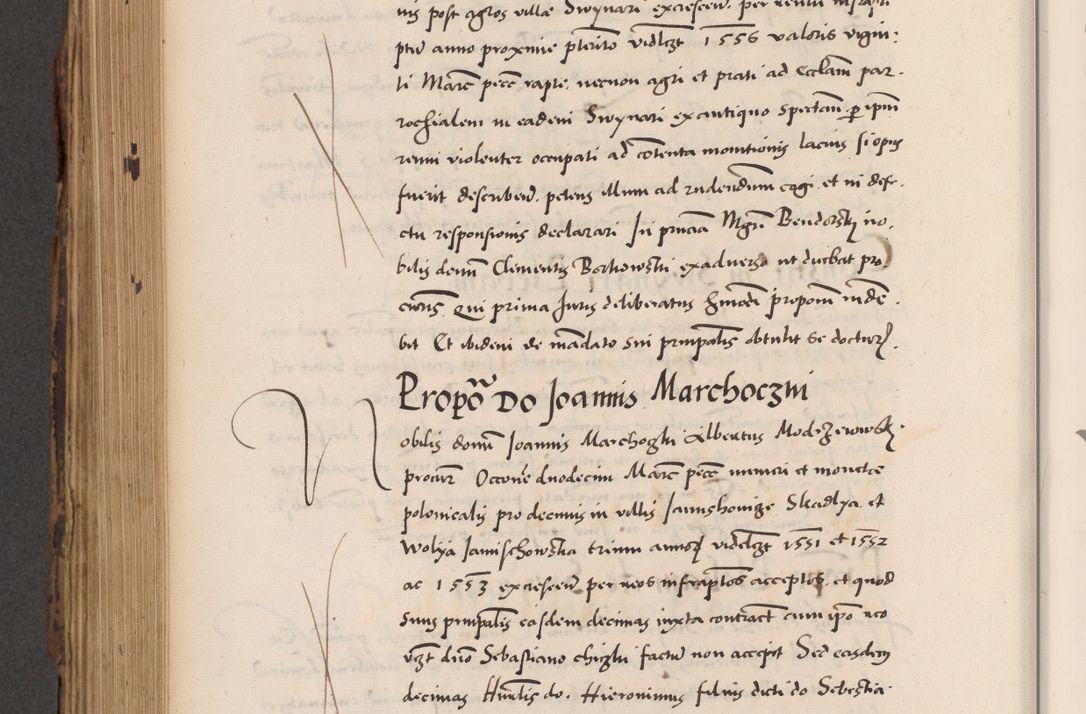 nis post agros villae Swynari excrescen. per reum infrascri
ptu anno proxime pterito videlzt 1556 valoris vigin:
ti Marc pecc rapte. necnon agri et prati ad Ecclam par.
rochialem in eadem Swynari ex antiquo spectan. p ipm
reum violenter occupati ad cotenta monitionis lacius si opus
fuerit describen. petens illum ad rndendum cogi. et in defe.
ctu responsionis declarari In pntia Mgri Bendorsky no.
bilis domi Clementis Borkowski ex adverso ut dicebat pro.
curis Qui prima Juris deliberatus hmodi propom rnde.
bit Et ibidem de madato sui prnpalis obtulit se doctur.
Propo DD Joannis Marchoczni
Nobilis domi Joannis Marchoghi Albertus Modrzewosky.
procur Occone duodecim Marc pecc numeri et monetae
polonicalis pro decimis in villis Janishovicze Skadlya. et
Wolya Janischowska trium annor videlzt 1551 et 1552
ac 1553 excrescen per reos infraptos acceptor. et quod
suus prnpalis easdem decimas iuxta contract cum ipo reo
vzt dno Sebastiano chizki factu non accepit Sed easdem
decimas Humlis do. Hieronimus filius dicti do Sebestia